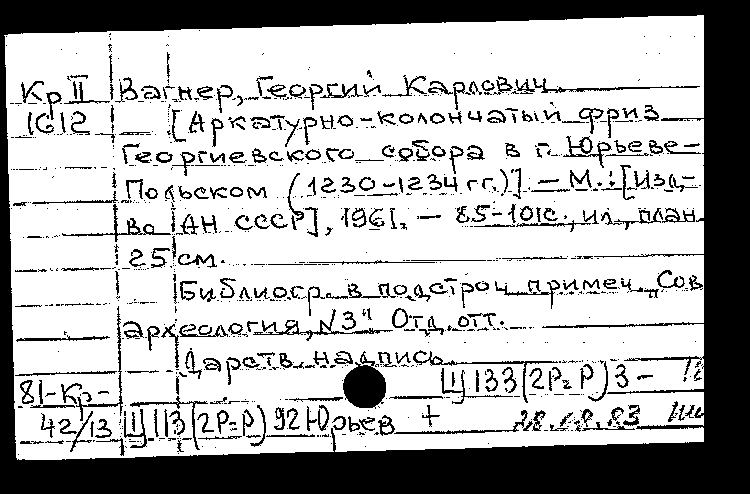 Кр II Вагнер, Георгий Карлович
1612 [Аркатурно-колончатый фриз
Георгиевского собора в г. Юрьеве-
Польском (1230-1234 гг.)] — М.: [Изд-
во АН СССР], 1961. — 85-101с., ил., план
25 см.
Библиогр. в подстроч. примеч. „Сов
археология, N3". Отд. отт.
Дарств. надпись.
81-Кр- Щ133(2Р=Р)3-
42/13 Щ113(2Р=Р)92Юрьев + 83